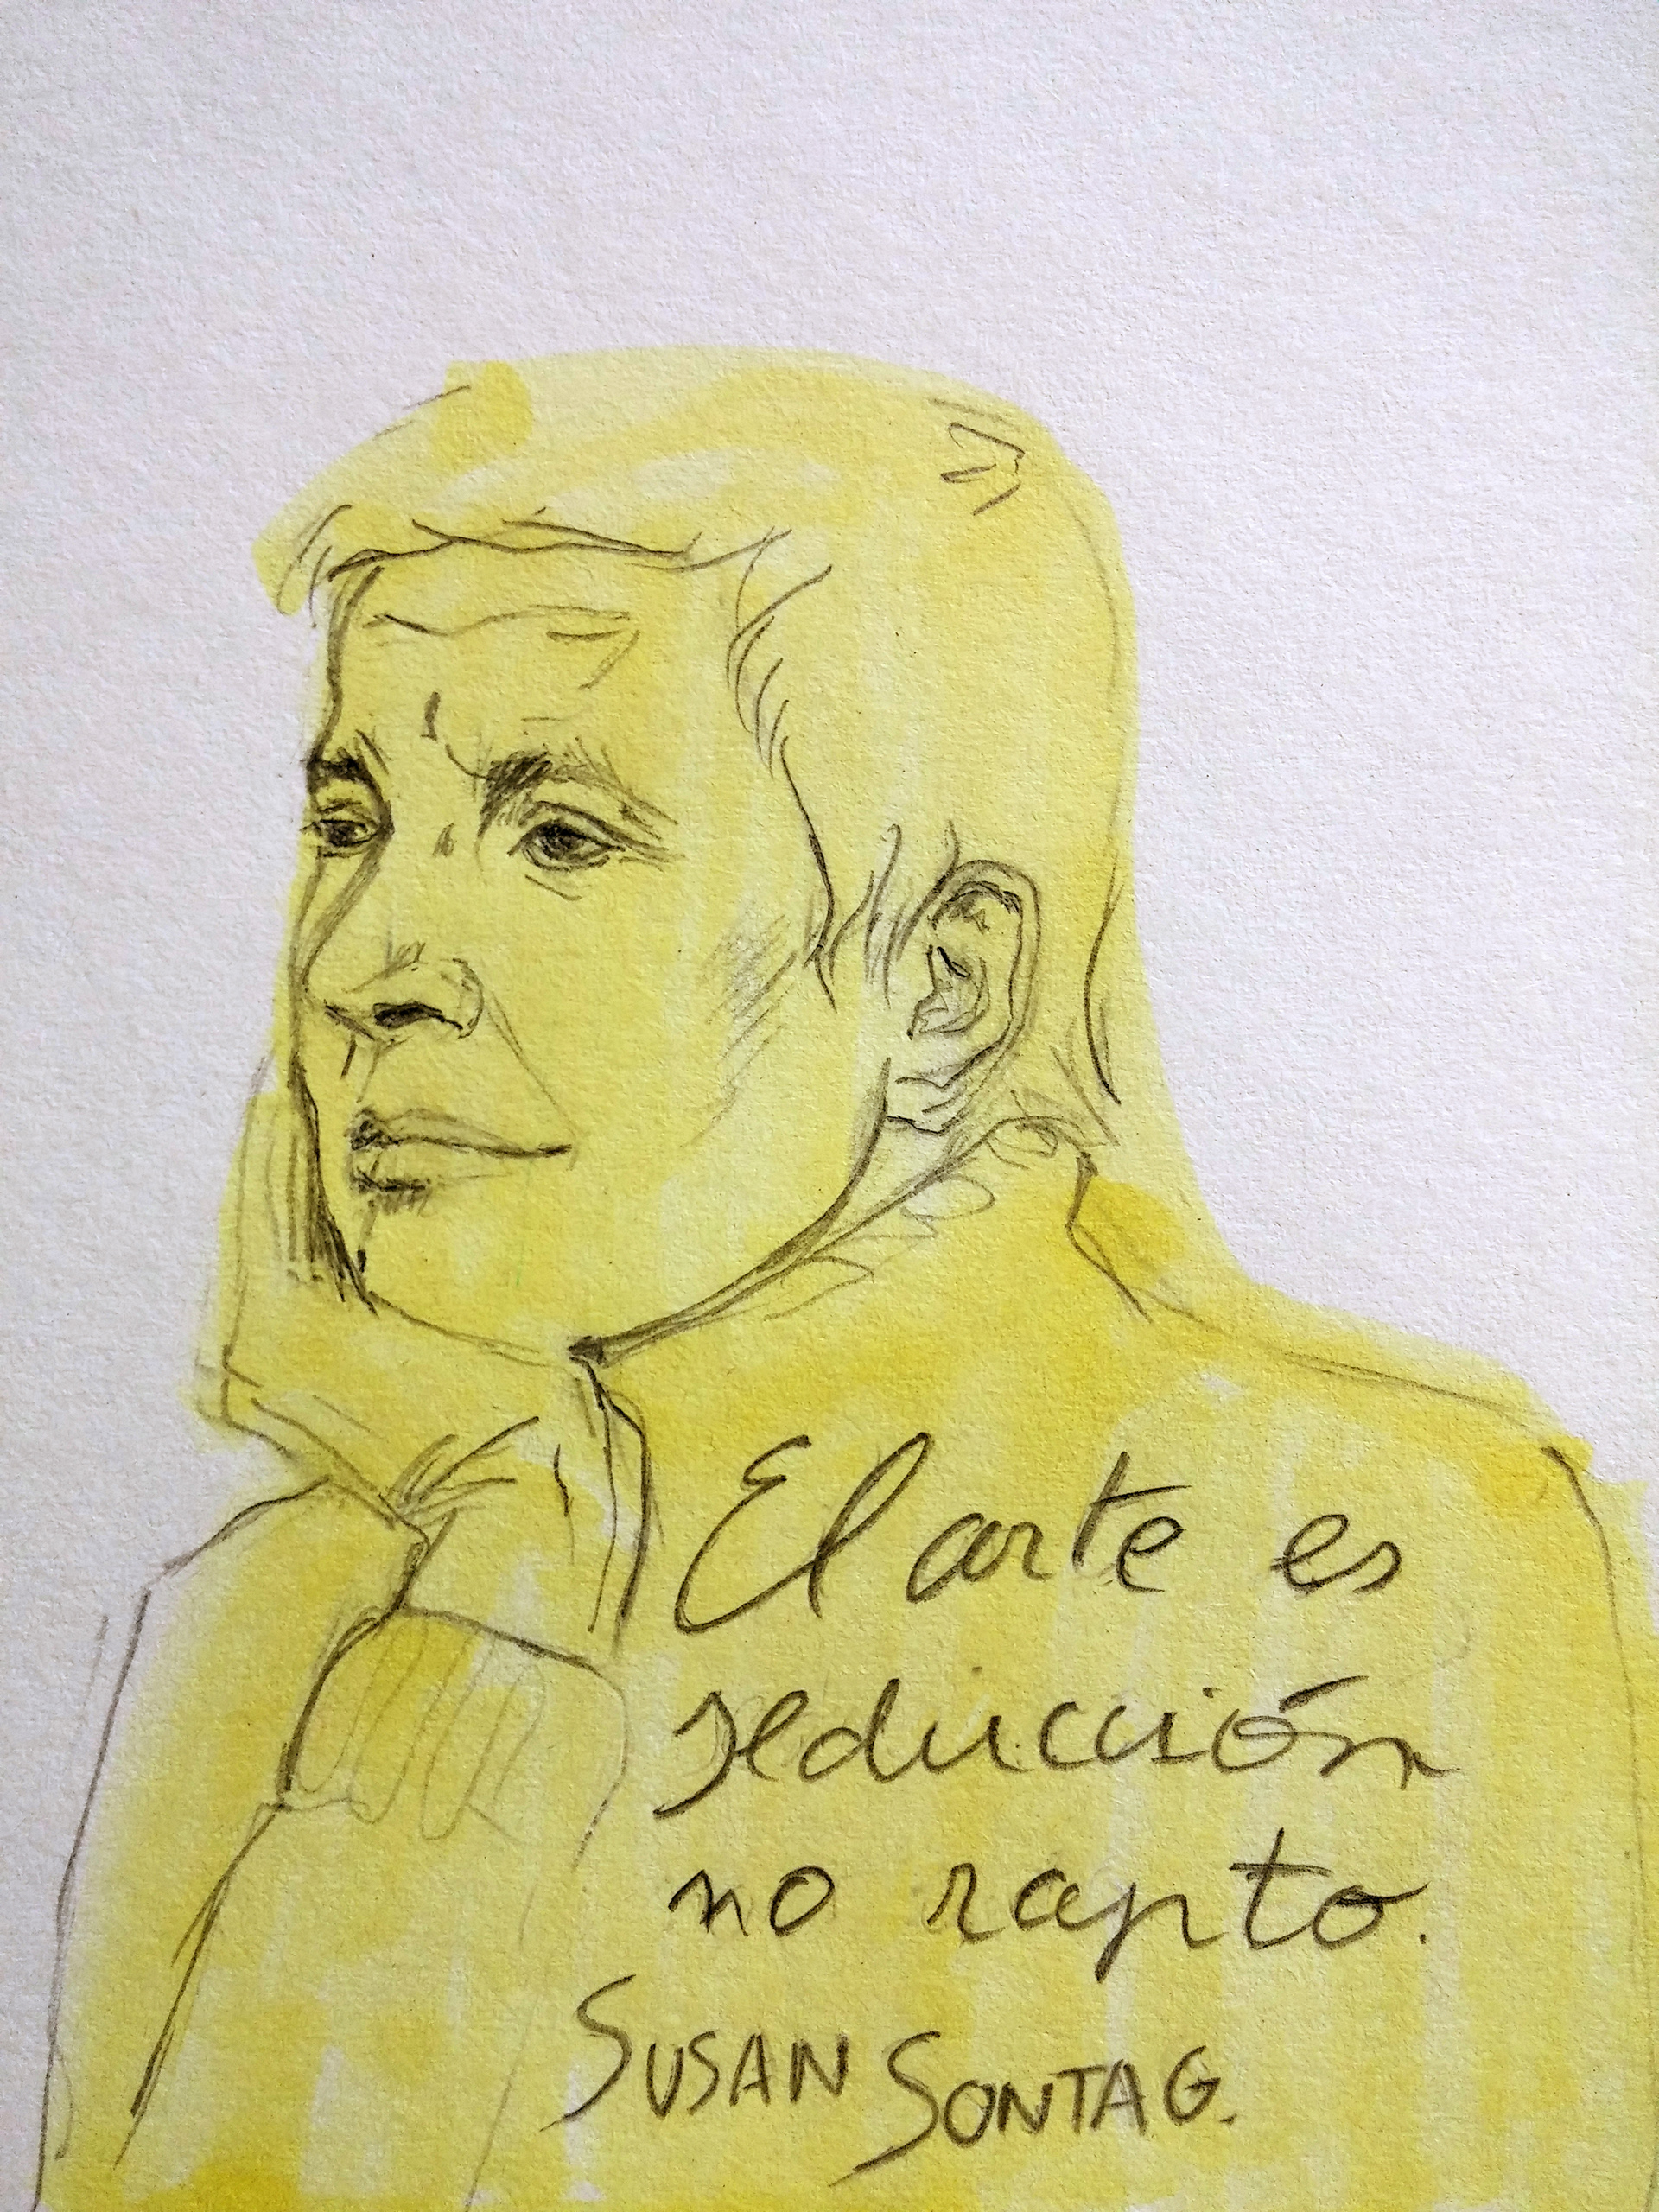 El arte es
seducción
no rapto.
SUSAN SONTAG.